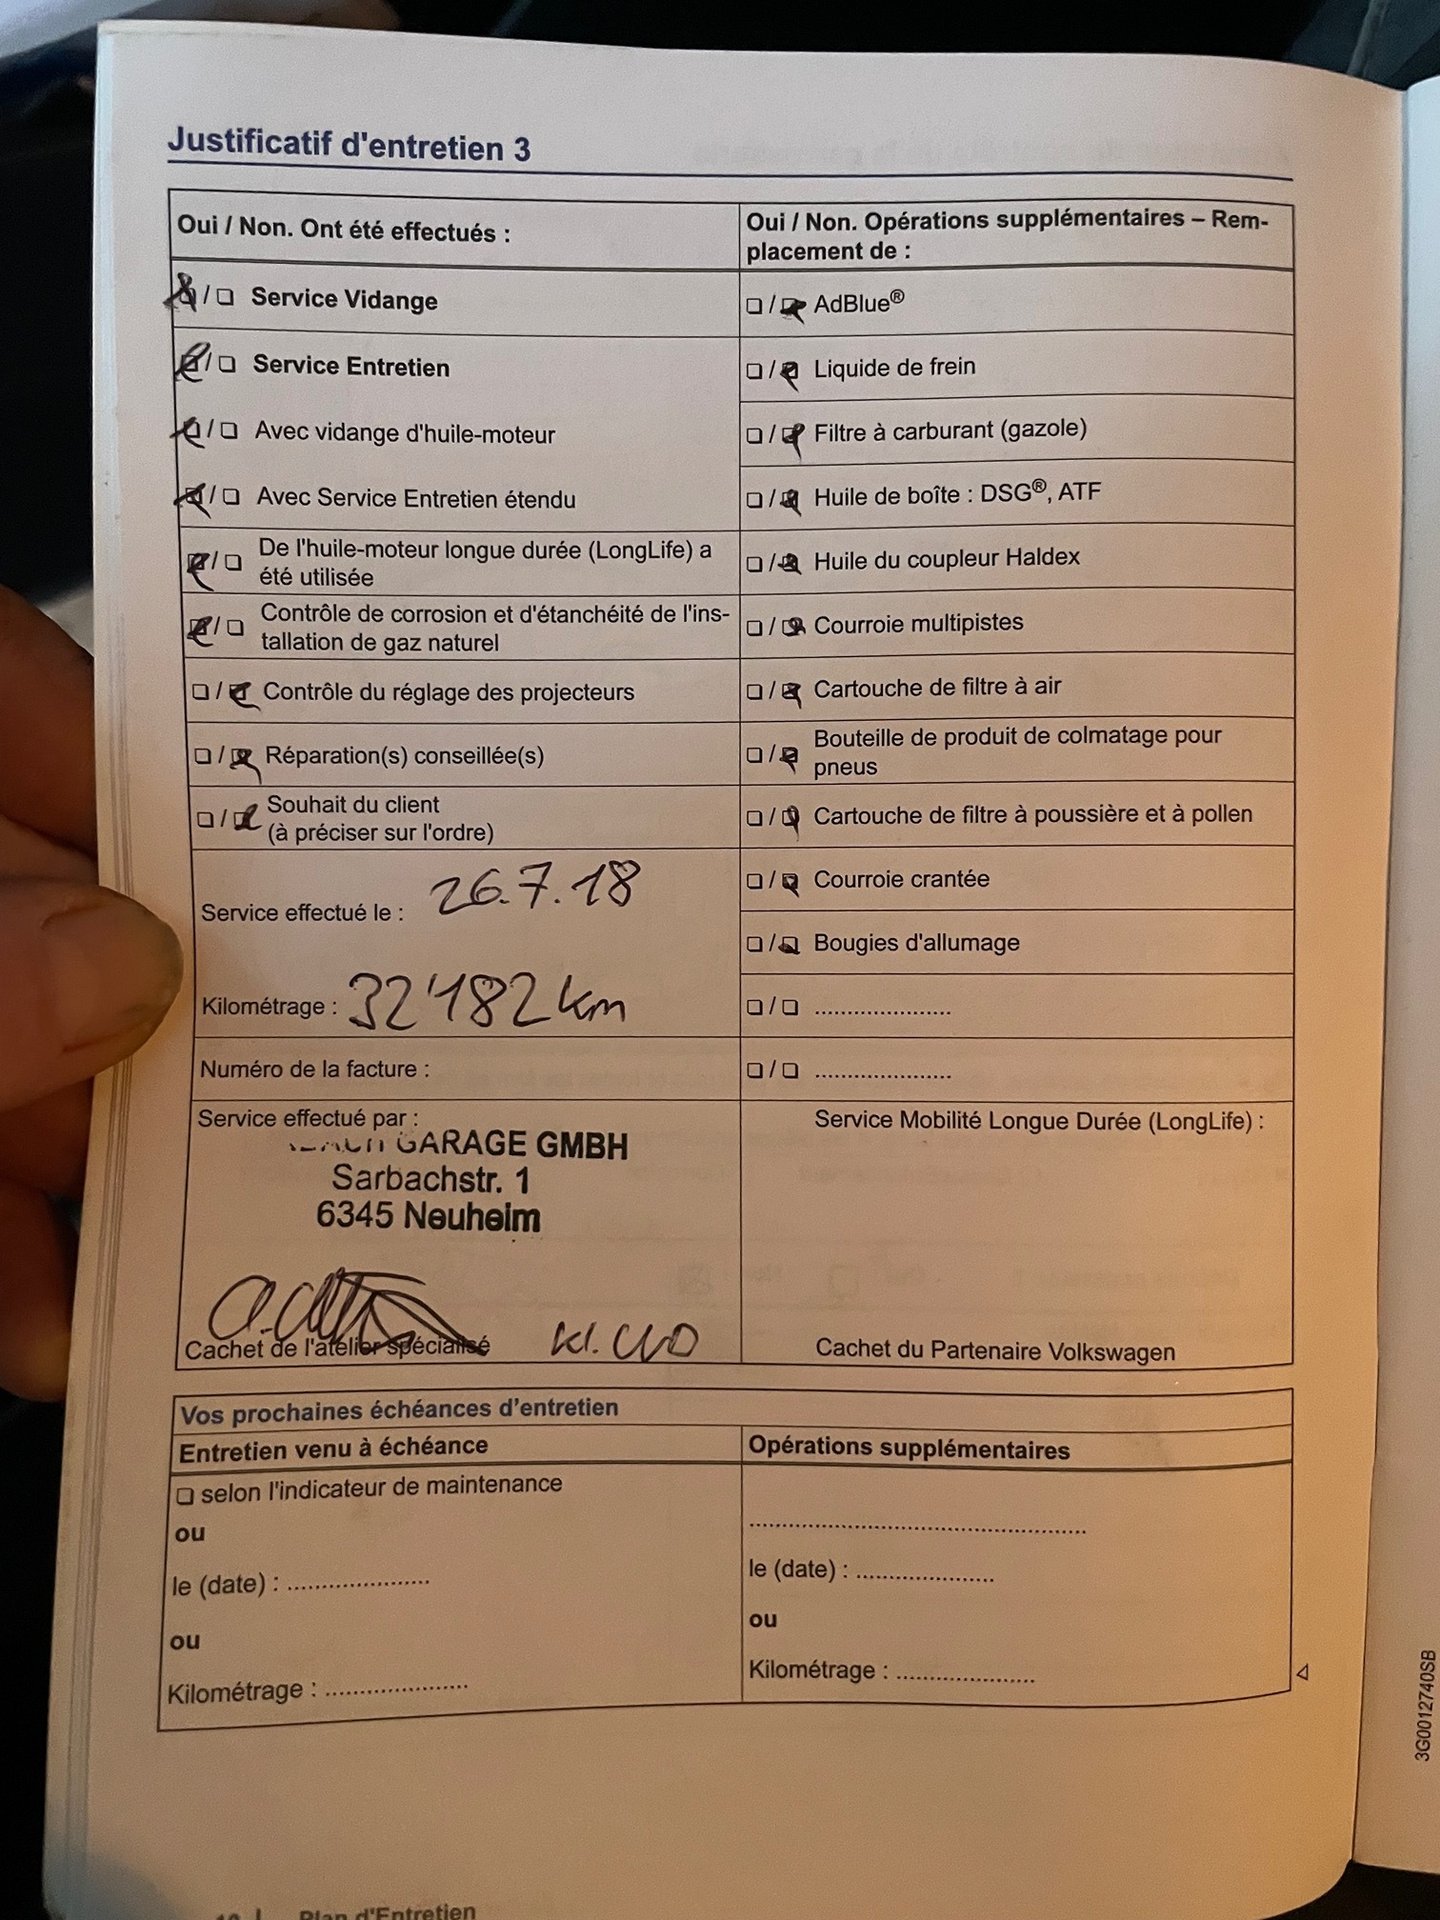 Justificatif d'entretien 3
Oui / Non. Ont été effectués :
☒ / ☐ Service Vidange
☒ / ☐ Service Entretien
☒ / ☐ Avec vidange d'huile-moteur
☒ / ☐ Avec Service Entretien étendu
☒ / ☐ De l'huile-moteur longue durée (LongLife) a
été utilisée
☒ / ☐ Contrôle de corrosion et d'étanchéité de l'ins-
tallation de gaz naturel
☐ / ☒ Contrôle du réglage des projecteurs
☐ / ☒ Réparation(s) conseillée(s)
☐ / ☒ Souhait du client
(à préciser sur l'ordre)
Service effectué le : 26.7.18
Kilométrage : 32'182 km
Numéro de la facture :
Service effectué par :
GARAGE GMBH
Sarbachstr. 1
6345 Neuheim
Cachet de l'atelier spécialisé
Oui / Non. Opérations supplémentaires – Rem-
placement de :
☐ / ☒ AdBlue®
☐ / ☒ Liquide de frein
☐ / ☒ Filtre à carburant (gazole)
☐ / ☒ Huile de boîte : DSG®, ATF
☐ / ☒ Huile du coupleur Haldex
☐ / ☒ Courroie multipistes
☐ / ☒ Cartouche de filtre à air
☐ / ☒ Bouteille de produit de colmatage pour
pneus
☐ / ☒ Cartouche de filtre à poussière et à pollen
☐ / ☒ Courroie crantée
☐ / ☒ Bougies d'allumage
☐ / ☐ .....................
☐ / ☐ .....................
Service Mobilité Longue Durée (LongLife) :
Cachet du Partenaire Volkswagen
Vos prochaines échéances d'entretien
Entretien venu à échéance
☐ selon l'indicateur de maintenance
ou
le (date) : .....................
ou
Kilométrage : .....................
Opérations supplémentaires
..................................................
le (date) : .....................
ou
Kilométrage : .....................
3G0012740SB
Plan d'Entretien